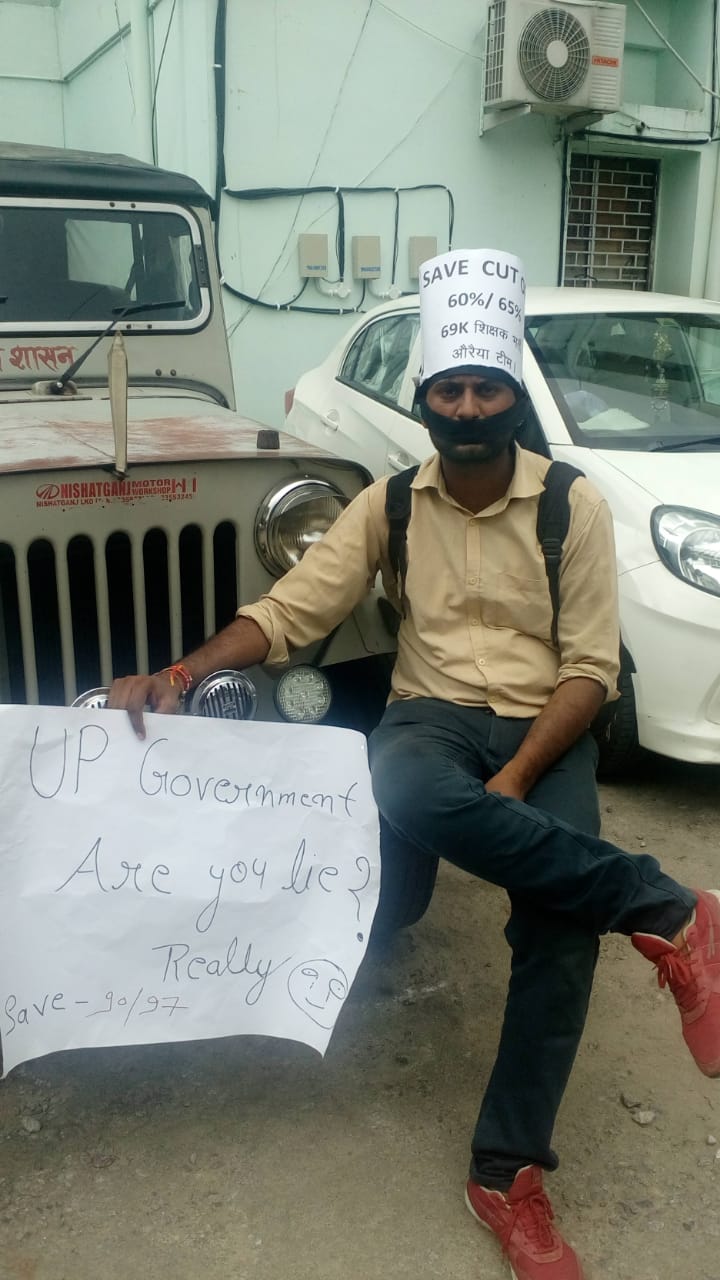 HITACHI
SAVE CUT O
60%/ 65%
69K शिक्षक भर्ती
औरैया टीम।
शासन
NISHATGANJ MOTOR WORKSHOP
NISHATGANJ LKO
UP Government
Are you lie?
Really
Save - 90/97